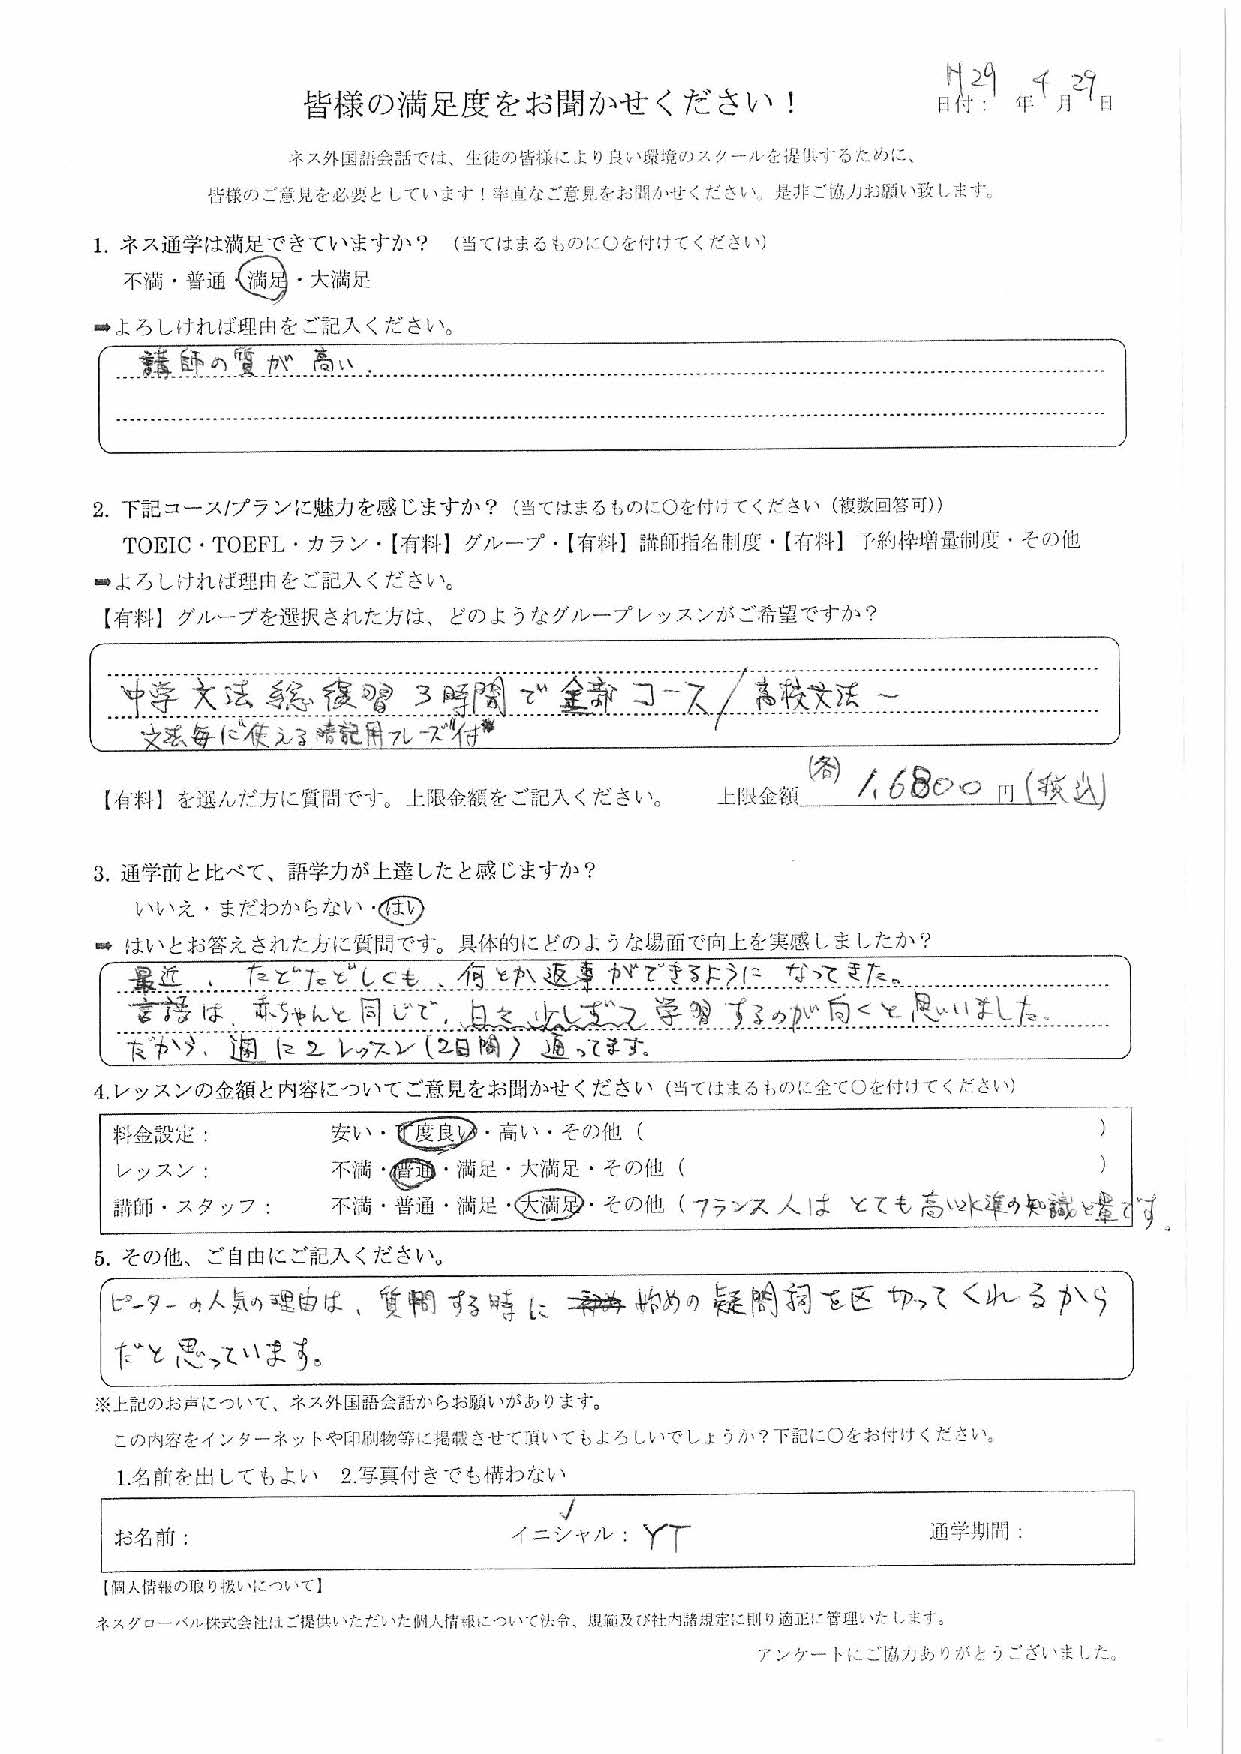 皆様の満足度をお聞かせください！
日付： H29 年 4 月 29 日
ネス外国語会話では、生徒の皆様により良い環境のスクールを提供するために、
皆様のご意見を必要としています！率直なご意見をお聞かせください。是非ご協力お願い致します。
1. ネス通学は満足できていますか？（当てはまるものに〇を付けてください）
不満・普通・満足・大満足
➡よろしければ理由をご記入ください。
講師の質が高い.
2. 下記コース/プランに魅力を感じますか？（当てはまるものに〇を付けてください（複数回答可））
TOEIC・TOEFL・カラン・【有料】グループ・【有料】講師指名制度・【有料】予約枠増量制度・その他
➡よろしければ理由をご記入ください。
【有料】グループを選択された方は、どのようなグループレッスンがご希望ですか？
中学文法総復習 3時間で全部コース/高校文法〜
文法毎に使える暗記用フレーズ付*
【有料】を選んだ方に質問です。上限金額をご記入ください。　上限金額 (各) 1,6800 円(税込)
3. 通学前と比べて、語学力が上達したと感じますか？
いいえ・まだわからない・はい
➡ はいとお答えされた方に質問です。具体的にどのような場面で向上を実感しましたか？
最近、たどたどしくも、何とか返事ができるようになってきた。
言語は、赤ちゃんと同じで、日々少しずつ学習するのが向くと思いました.
だから、週に2レッスン(2日間)通ってます。
4.レッスンの金額と内容についてご意見をお聞かせください（当てはまるものに全て〇を付けてください）
料金設定：　安い・丁度良い・高い・その他（　）
レッスン：　不満・普通・満足・大満足・その他（　）
講師・スタッフ：　不満・普通・満足・大満足・その他（フランス人は とても高い水準の知識と量です。
5. その他、ご自由にご記入ください。
ピーターの人気の理由は、質問する時に 始めの疑問詞を区切ってくれるから
だと思っています。
※上記のお声について、ネス外国語会話からお願いがあります。
この内容をインターネットや印刷物等に掲載させて頂いてもよろしいでしょうか？下記に〇をお付けください。
1.名前を出してもよい　2.写真付きでも構わない
✓
お名前：　イニシャル：YT　通学期間：
【個人情報の取り扱いについて】
ネスグローバル株式会社はご提供いただいた個人情報について法令、規範及び社内諸規定に則り適正に管理いたします。
アンケートにご協力ありがとうございました。